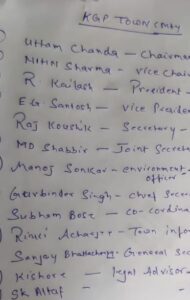 KGP TOWN COMM
Uttam Chanda — Chairman
Nitin Sharma - Vice Chair
R Kailash — President -
E.G. Santosh — vice Presiden
Raj Koushik — Secretary -
MD Shabbir — Joint Secreta
Manoj Sonkar - environment
officer
Gurbinder Singh - Chief Secre
Subham Bose — co-cordina
Town info
Sanjay Bhattacharjee General Sec
Kishore — legal Advisor
SK Altaf -